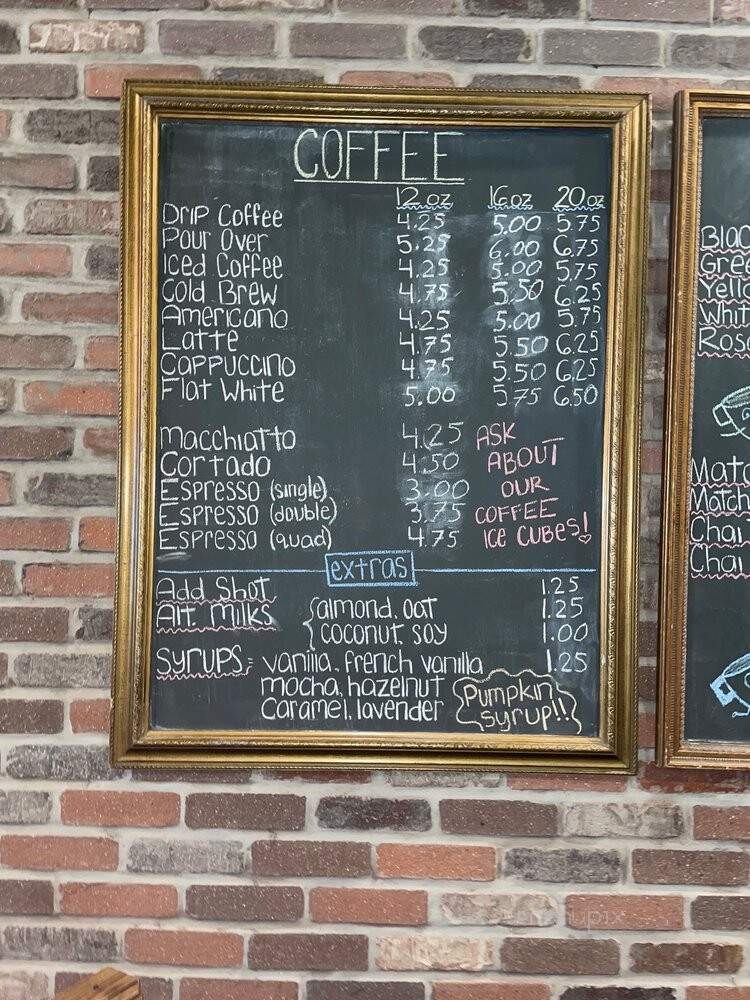 COFFEE
12oz 16oz 20oz
Drip Coffee 4.25 5.00 5.75
Pour Over 5.25 6.00 6.75
Iced Coffee 4.25 5.00 5.75
Cold Brew 4.75 5.50 6.25
Americano 4.25 5.00 5.75
Latte 4.75 5.50 6.25
Cappuccino 4.75 5.50 6.25
Flat White 5.00 5.75 6.50
Macchiatto 4.25
Cortado 4.50
Espresso (single) 3.00
Espresso (double) 3.75
Espresso (quad) 4.75
ASK
ABOUT
OUR
COFFEE
ICE CUBES!
extras
Add Shot 1.25
Alt. Milks { almond, oat 1.25
coconut, soy 1.00
Syrups: vanilla, french vanilla 1.25
mocha, hazelnut
caramel, lavender
Pumpkin
syrup!!
Blac
Gree
Yello
Whit
Roo
Matc
Match
Chai
Chai